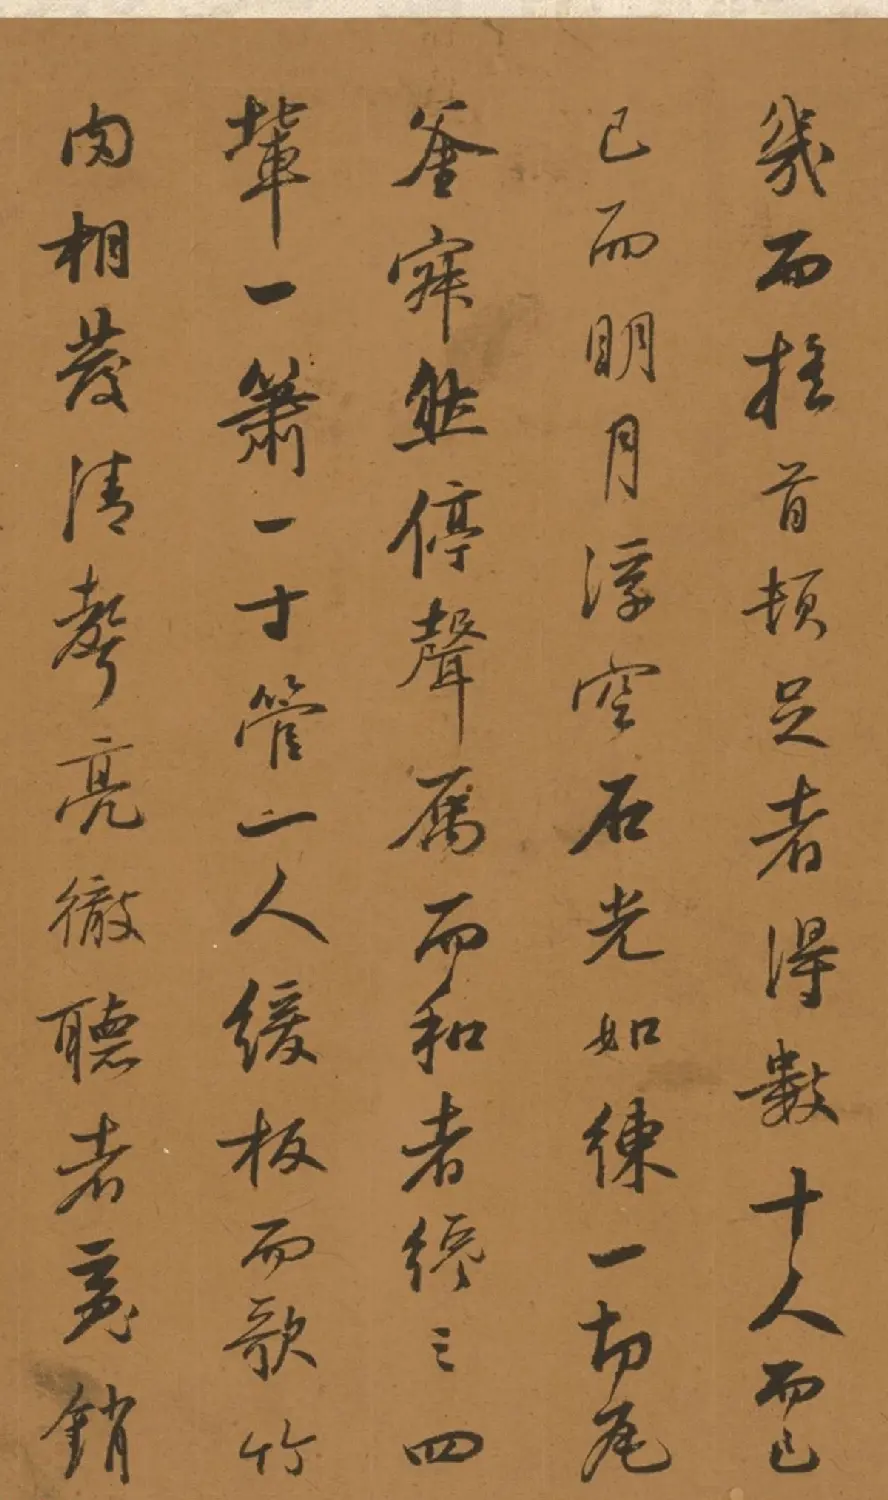 幾而搖首頓足者得數十人而已
已而明月浮空石光如練一切瓦
釜寂然停聲屬而和者纔三四
輩一簫一寸管一人緩板而歌竹
肉相發清聲亮徹聽者竟銷